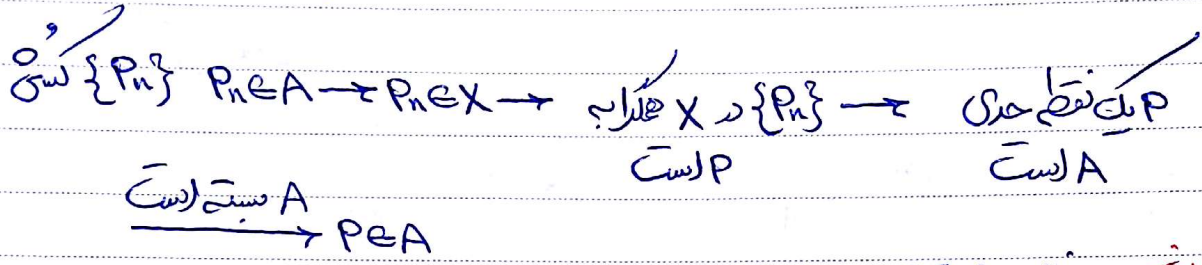 کُشی {Pn} Pn∈A → Pn∈X → {Pn} در X همگرا به P است → P یک نقطه حدی A است
A بسته است → P∈A